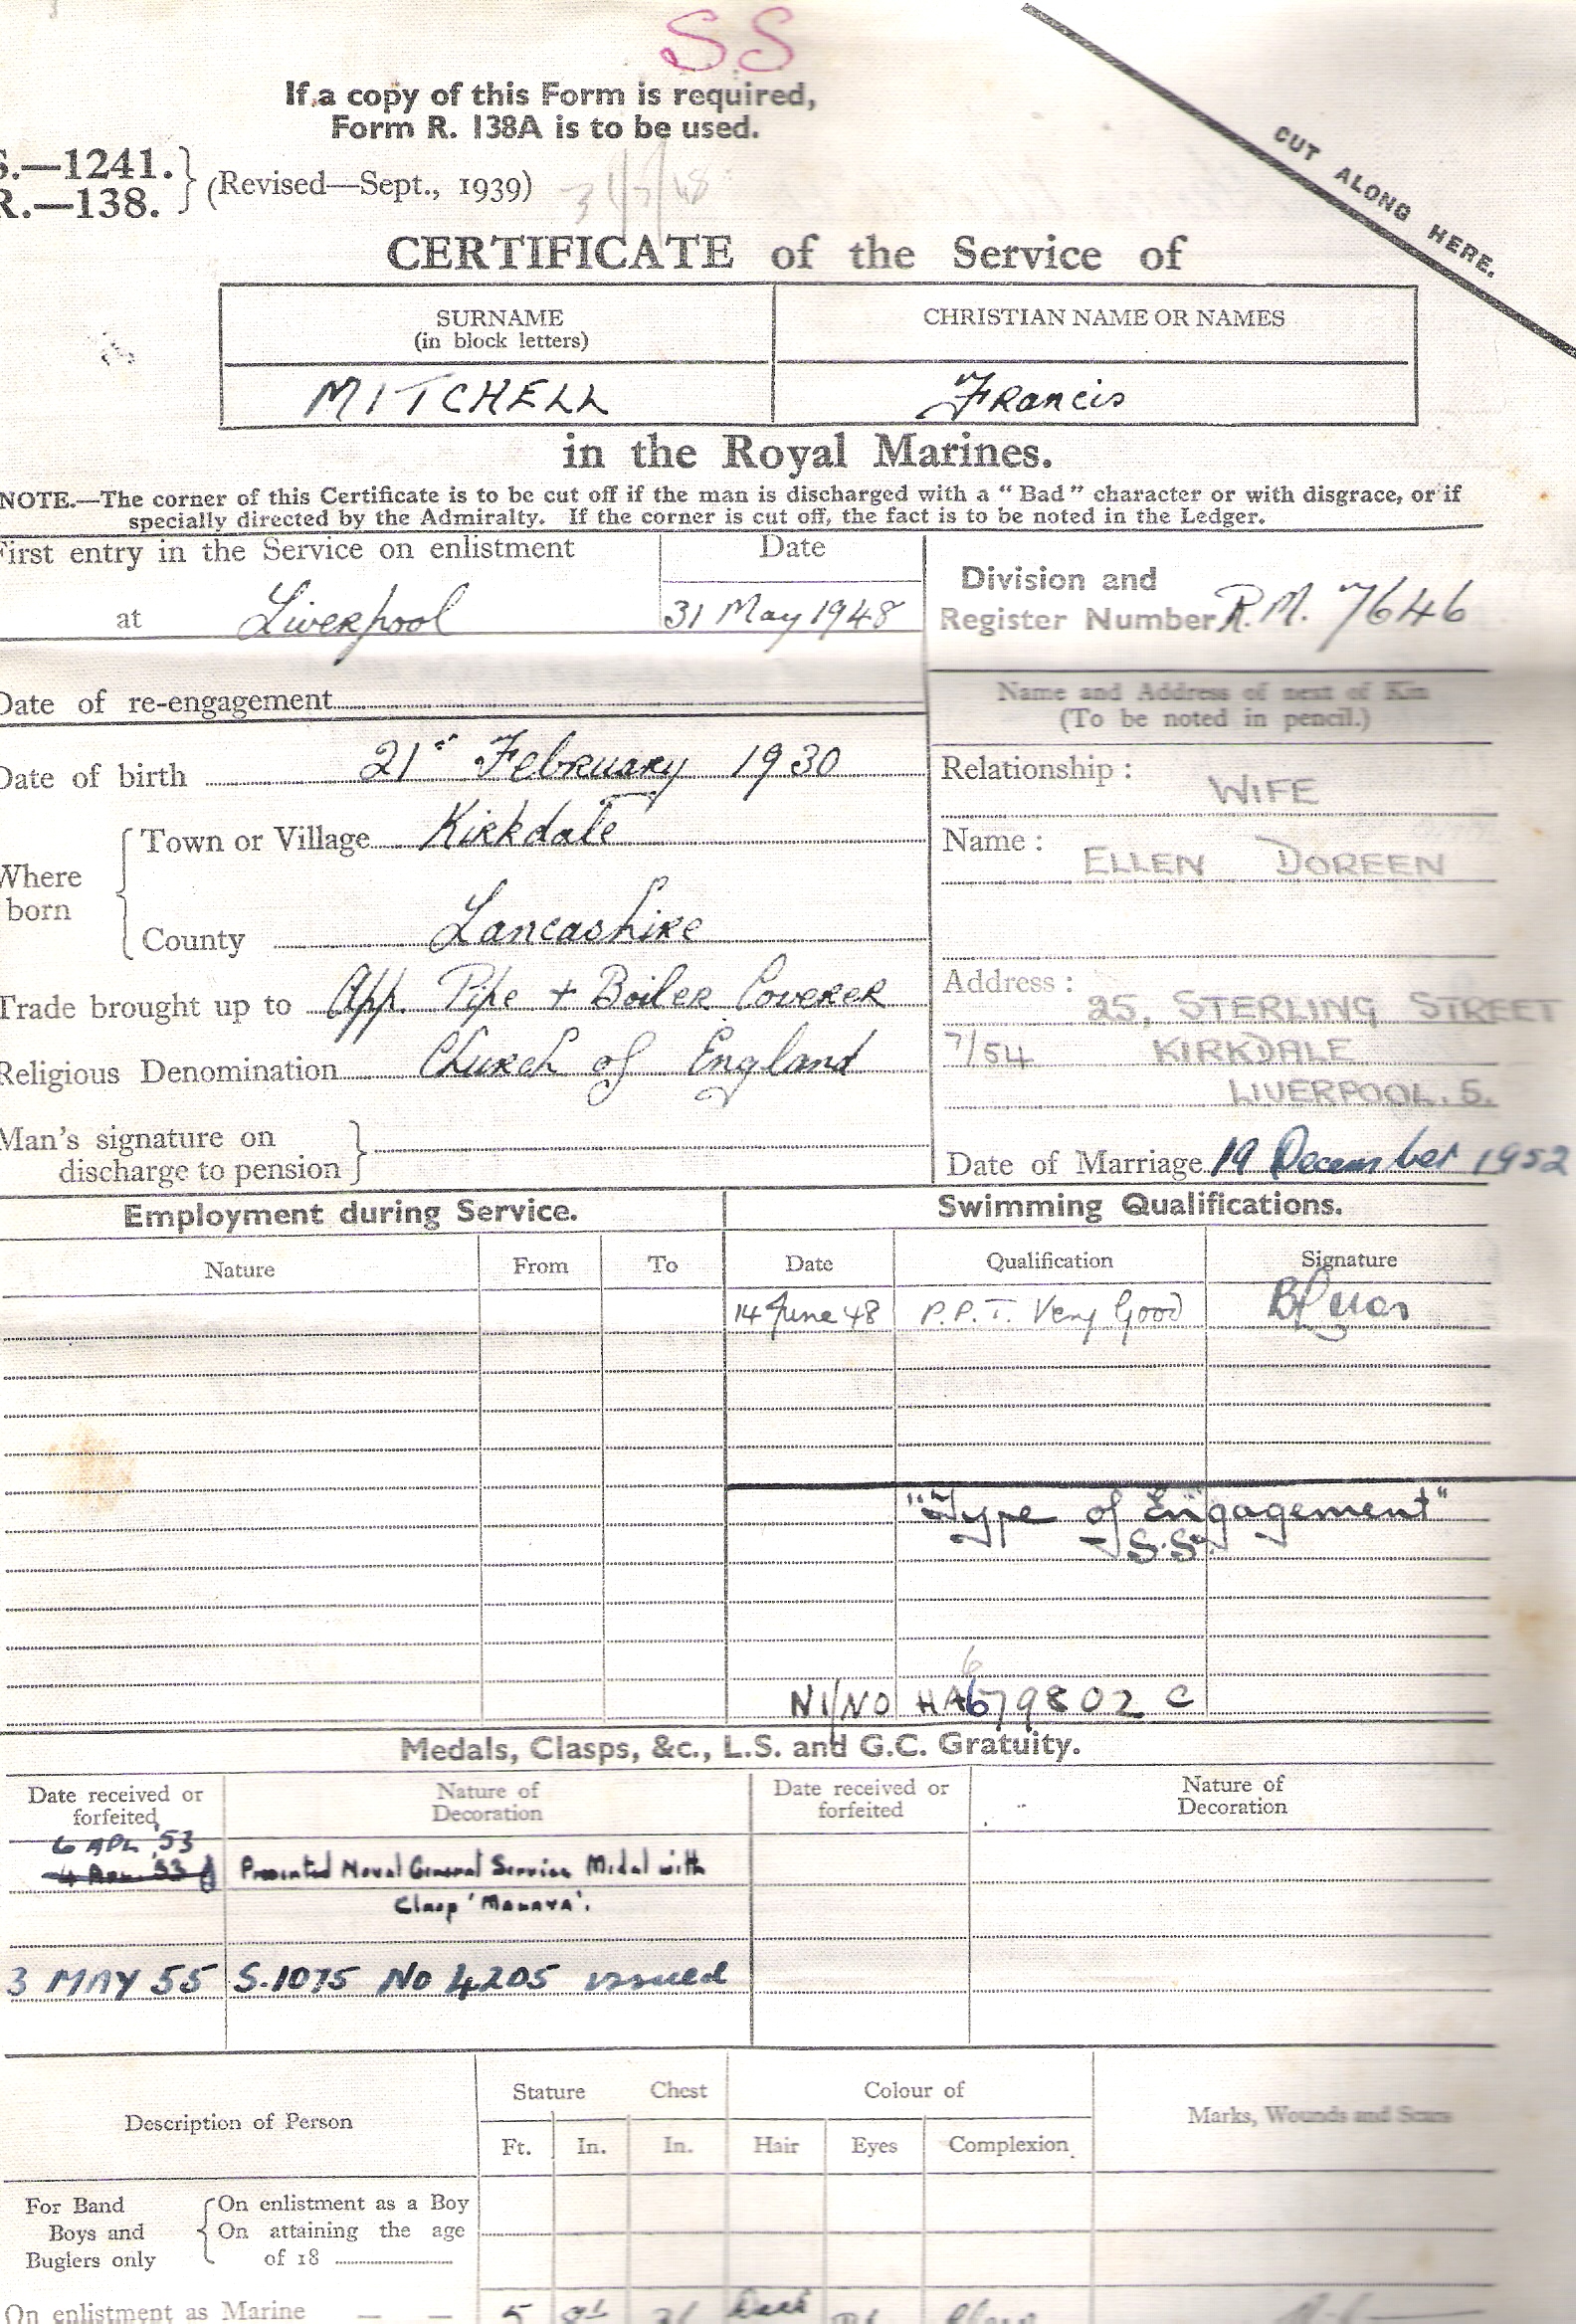 SS
If a copy of this Form is required,
Form R. 138A is to be used.
S.—1241.
R.—138.
(Revised—Sept., 1939)
CUT ALONG HERE.
CERTIFICATE of the Service of
SURNAME
(in block letters)
CHRISTIAN NAME OR NAMES
MITCHELL
Francis
in the Royal Marines.
NOTE.—The corner of this Certificate is to be cut off if the man is discharged with a "Bad" character or with disgrace, or if
specially directed by the Admiralty. If the corner is cut off, the fact is to be noted in the Ledger.
First entry in the Service on enlistment
at Liverpool
Date
31 May 1948
Division and
Register Number R.M. 7646
Date of re-engagement
Date of birth 21st February 1930
Where born
Town or Village Kirkdale
County Lancashire
Trade brought up to App. Pipe + Boiler Coverer
Religious Denomination Church of England
Man's signature on
discharge to pension
Name and Address of next of Kin
(To be noted in pencil.)
Relationship :
WIFE
Name : ELLEN DOREEN
Address :
25, STERLING STREET
7/54 KIRKDALE
LIVERPOOL. 5.
Date of Marriage 19 December 1952
Employment during Service.
Nature From To
Swimming Qualifications.
Date Qualification Signature
14 June 48 P.P.T. Very Good
"Type of Engagement"
S.S.
6
NI/NO HA679802 C
Medals, Clasps, &c., L.S. and G.C. Gratuity.
Date received or
forfeited
Nature of
Decoration
Date received or
forfeited
Nature of
Decoration
6 APL '53
4 APL. 53
Presented Naval General Service Medal with
Clasp 'MALAYA'.
3 MAY 55 S.1075 No 4205 issued
Description of Person
Stature
Chest
Colour of
Marks, Wounds and Scars
Ft. In. In. Hair Eyes Complexion
For Band
Boys and
Buglers only
On enlistment as a Boy
On attaining the age
of 18
On enlistment as Marine
5